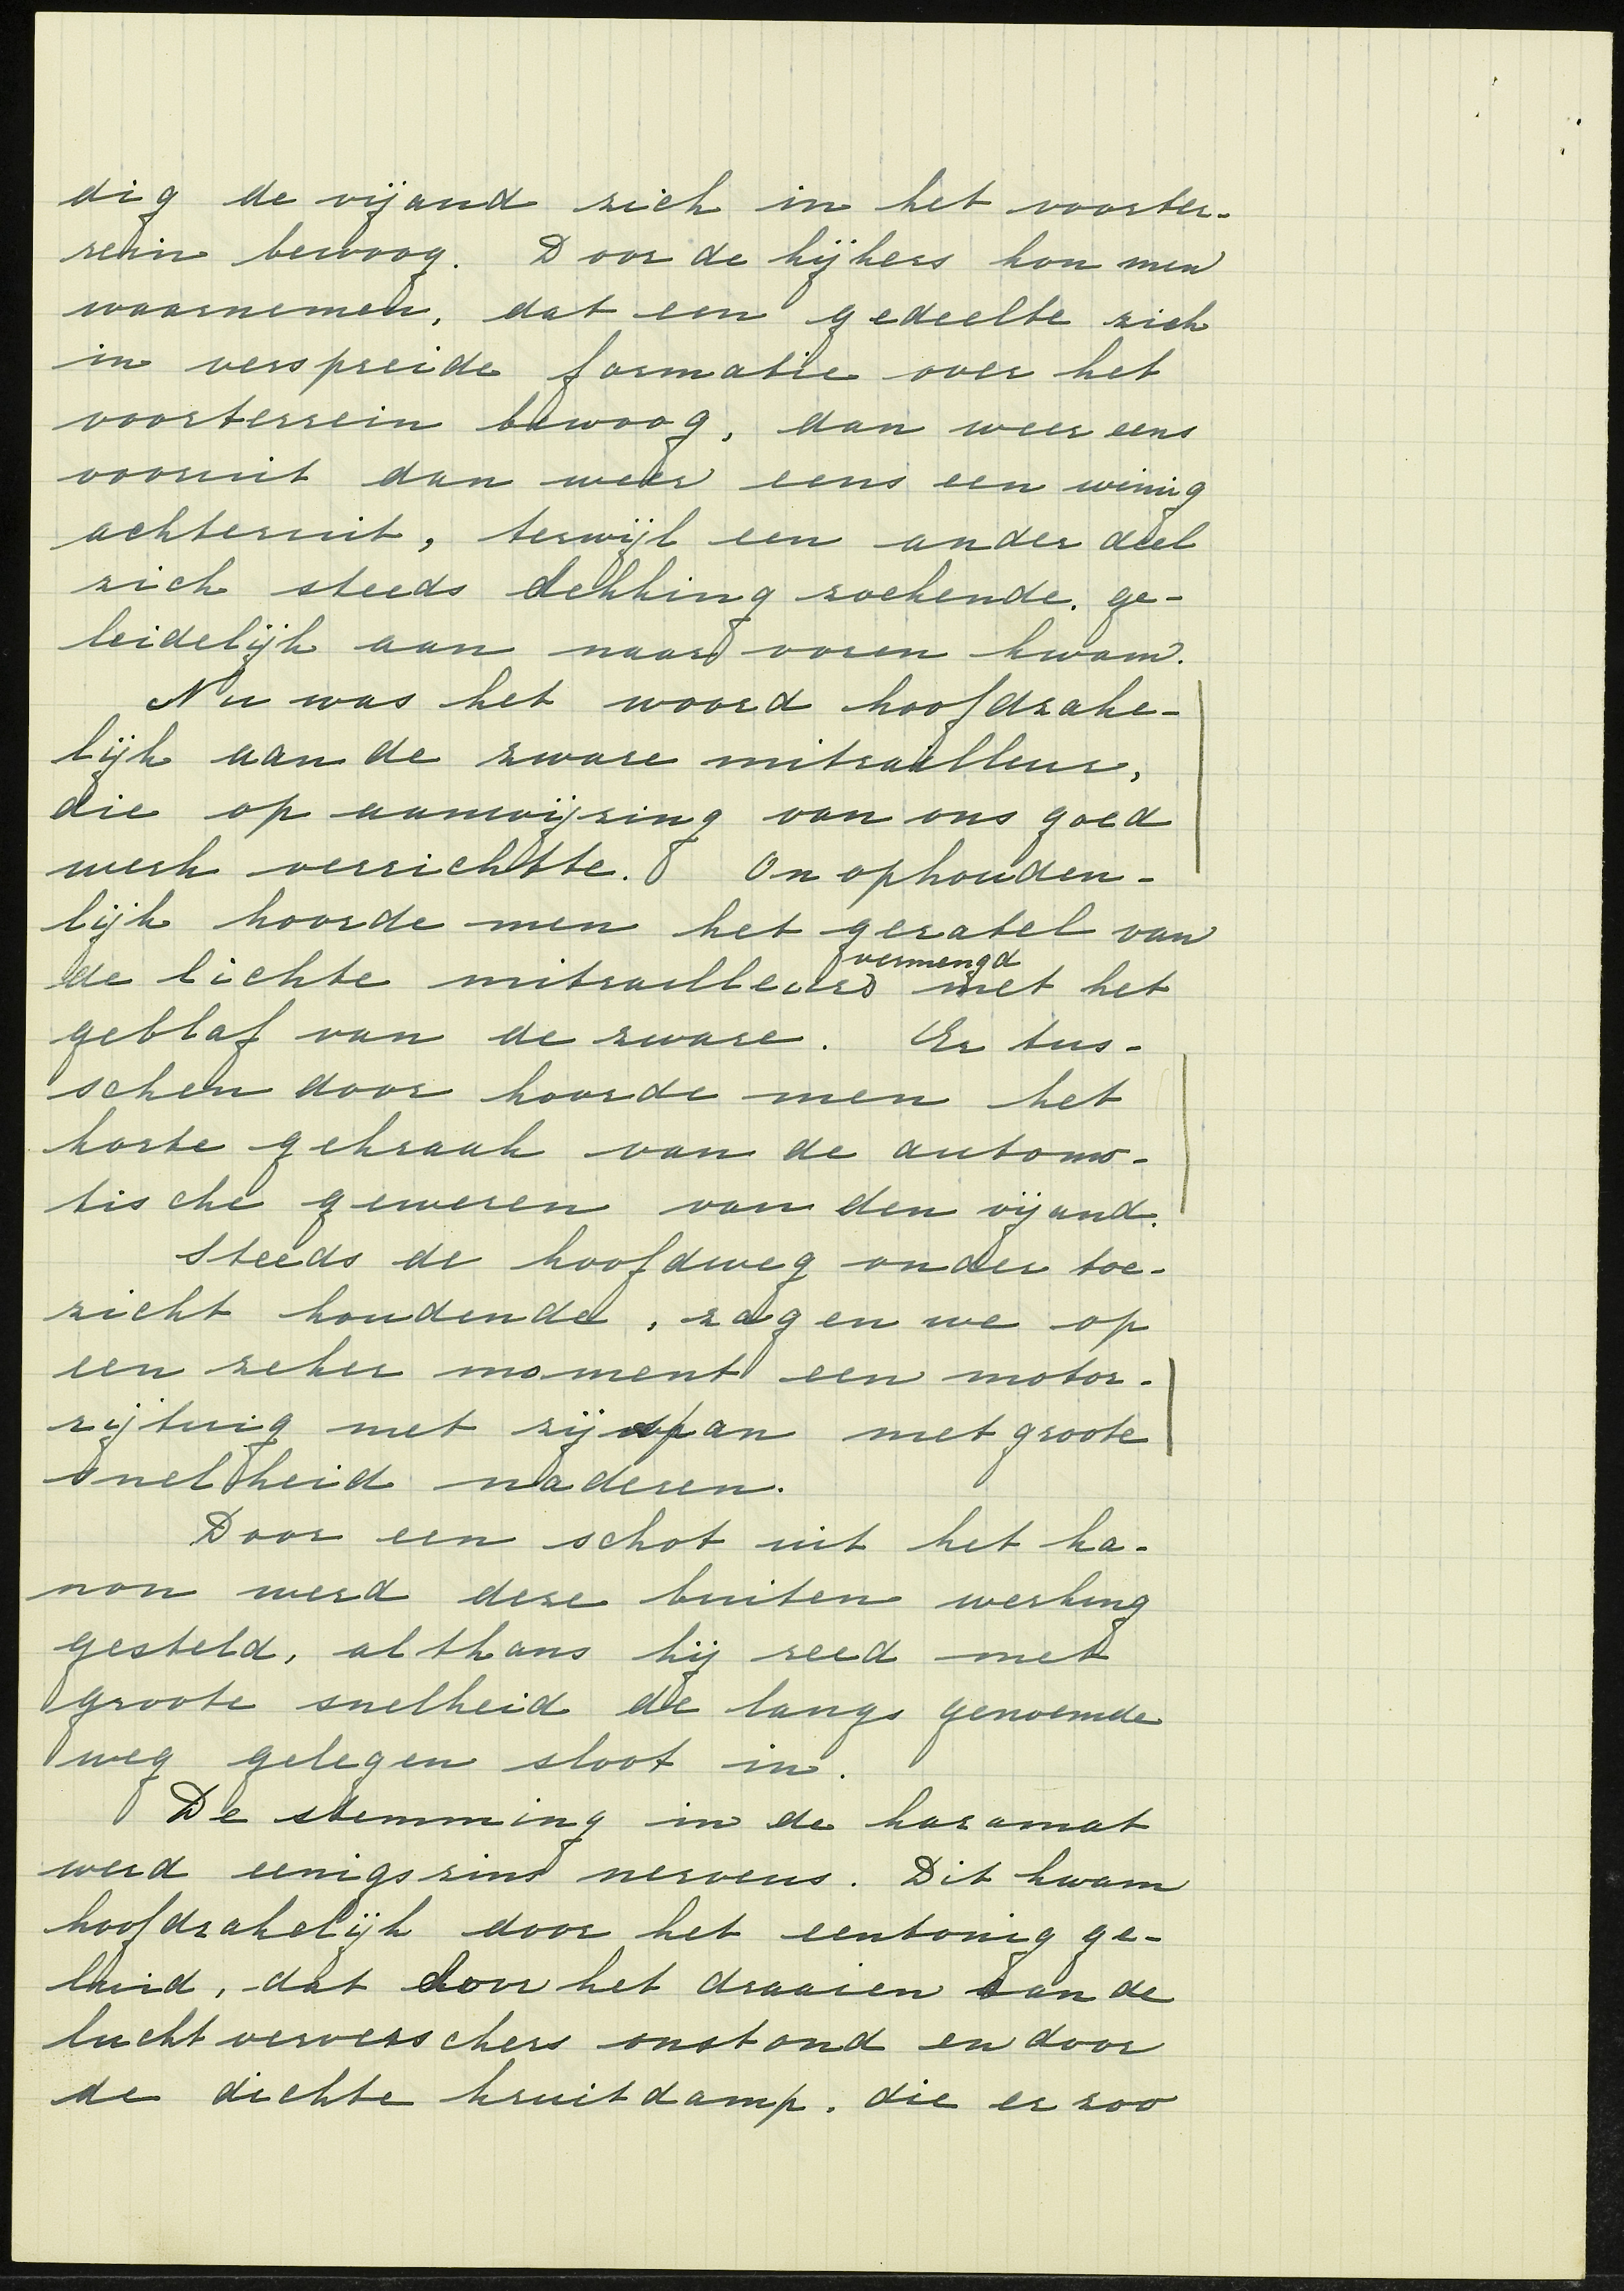 dig de vijand zich in het voorter-
rein bewoog. Door de kijkers kon men
waarnemen, dat een gedeelte zich
in verspreide formatie over het
voorterrein bewoog, dan weer eens
vooruit dan weer eens een weinig
achteruit, terwijl een ander deel
zich steeds dekking zoekende, ge-
leidelijk aan naar voren kwam.
Nu was het woord hoofdzake-
lijk aan de zware mitrailleur,
die op aanwijzing van ons goed
werk verrichtte. Onophouden-
lijk hoorde men het geratel van
vermengd
de lichte mitrailleurs met het
geblaf van de zware. Er tus-
schen door hoorde men het
korte gekraak van de automa-
tische geweren van den vijand.
Steeds de hoofdweg onder toe-
zicht houdende, zagen we op
een zeker moment een motor-
rijtuig met zijspan met groote
snelheid naderen.
Door een schot uit het ka-
non werd deze buiten werking
gesteld, althans hij reed met
groote snelheid de langs genoemde
weg gelegen sloot in.
De stemming in de kazamat
werd eenigszins nerveus. Dit kwam
hoofdzakelijk door het eentonig ge-
luid, dat door het draaien van de
luchtververschers onstond en door
de dichte kruitdamp, die er zoo